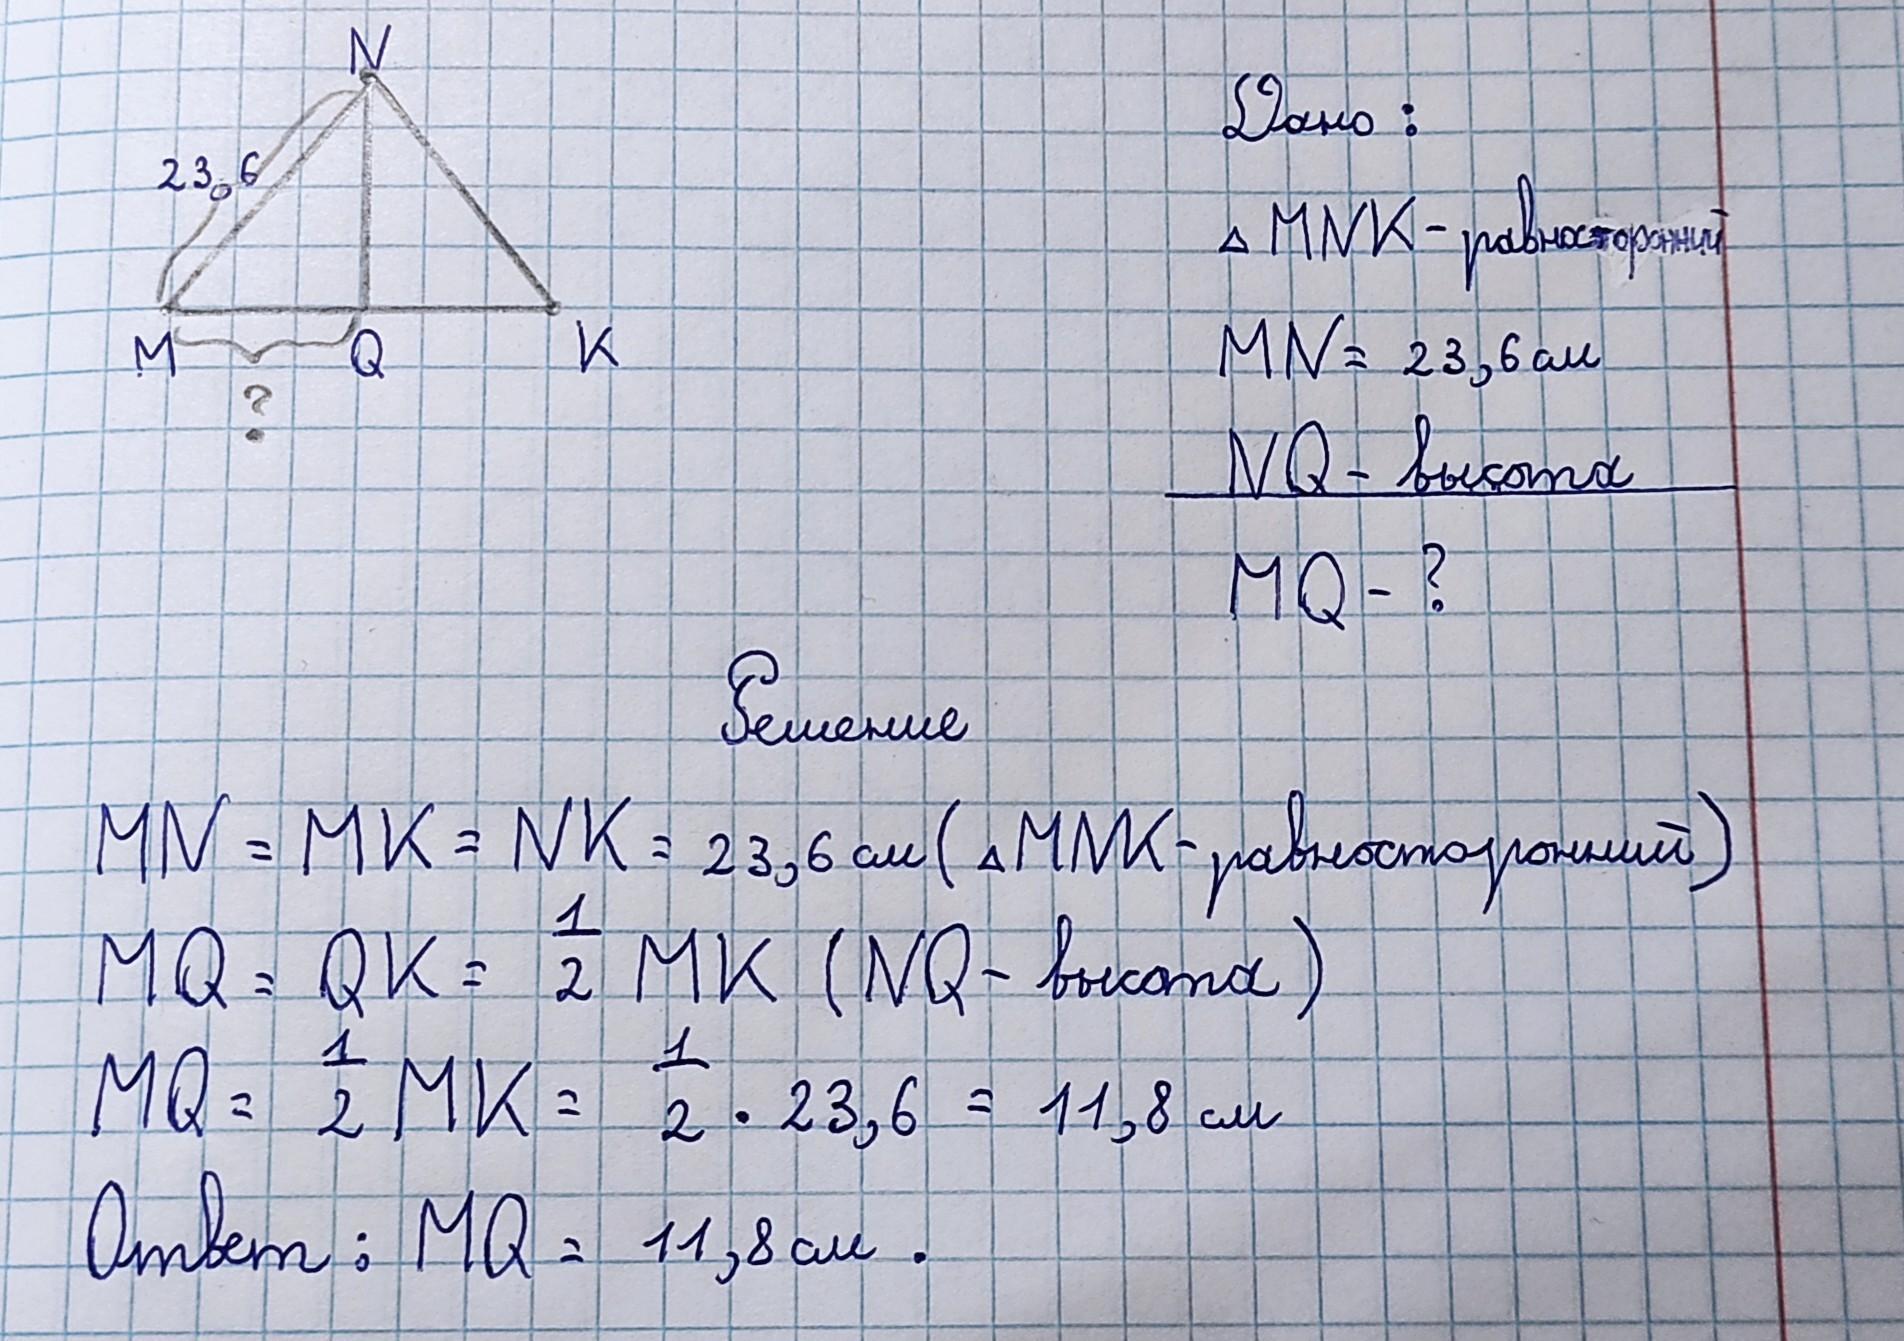 N
23,6
M Q K
?
Дано:
△MNK - равносторонний
MN = 23,6 см
NQ - высота
MQ - ?
Решение
MN = MK = NK = 23,6 см (△MNK - равносторонний)
MQ = QK = 1/2 MK (NQ - высота)
MQ = 1/2 MK = 1/2 · 23,6 = 11,8 см
Ответ: MQ = 11,8 см.